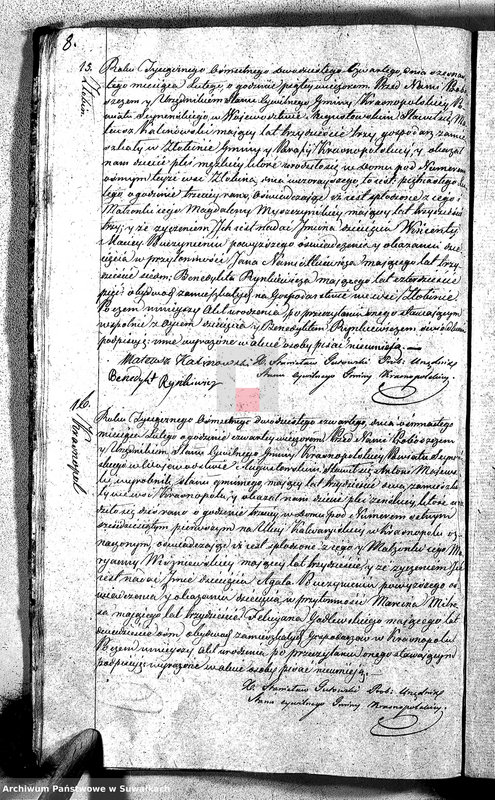 8.
15.
Roku Tysiącznego Ośmsetnego dwudziestego czwartego, dnia szesna-
stego miesiąca Lutego, o godzinie piątey wieczorem. Przed Nami Probo-
szczem y Urzędnikiem Stanu Cywilnego Gminy Krasnopolskiey Po-
wiatu Seynenskiego w Wojewodztwie Augustowskim Stawił się Ma-
teusz Kalinowski maiący lat trzydzieście trzy gospodarz zamie-
szkały w Złotinie Gminy y Parafii Krasnopolskiey, y okazał
nam dziecię płci męzkiey, które urodziło się w domu pod Numerem
osmym teyże wsi Złotina, dnia wczorayszego to iest: piętnastego Lu-
tego o godzinie trzeciey rano, Oświadczaiąc iż iest spłodzone z niego i
Małżonki iego Magdaleny Myszczynskiey, maiącey lat trzydzieście
trzy, y że życzeniem Ich iest nadać Imiona dziecięciu Wincenty
Maciey Po uczynieniu powyższego oświadczenia y okazaniu dzie-
cięcia w przytomności Jana maiącego lat trzy-
dzieście siedm, Benedykta Rynkiewicza maiącego lat czterdzieście
pięć obydwóch zamieszkałych na Gospodarstwie we wsi Złotinie
Poczem ninieyszy Akt urodzenia, po przeczytaniu onego stawaiącym
wspolnie z Oycem dziecięcia y Benedyktem Rynkiewiczem
podpisany; inne wyrażone w akcie osoby pisać nieumieią.
Mateusz Kalinowski X. Stanisław Gutowski Prob: Urzędnik
Benedykt Rynkiewicz Stanu Cywilnego Gminy Krasnopolskiey.
16.
Krasnopol
Roku Tysiącznego Ośmsetnego dwudziestego czwartego, dnia osmnastego
miesiąca Lutego o godzinie czwartey wieczorem. Przed Nami Proboszczem
y Urzędnikiem Stanu Cywilnego Gminy Krasnopolskiey Powiatu Seynen-
skiego w Wojewodztwie Augustowskim Stawił się Antoni Majew-
ski wyrobnik, stanu gminnego maiący lat trzydzieście dwa zamieszka-
ły we wsi Krasnopolu, y okazał nam dziecię płci zeńskiey, które uro-
dziło się dziś rano o godzinie trzeciey w domu pod Numerem setnym
sześćdziesiątym pierwszym na Ulicy Kalwaryiskiey w Krasnopolu oz-
naczonym, oświadczaiąc iż iest spłodzone z niego y Małżonki iego Ma-
ryanny Wiszniewskiey maiącey lat trzydzieście, y że życzeniem Ich
iest nadać Imie dziecięciu Agata Po uczynieniu powyższego oś-
wiadczenia y okazaniu dziecięcia w przytomności Marcina
maiącego lat trzydzieście, Felicyana Gadlewskiego maiącego lat
dwadzieścia osm obydwóch zamieszkałych Gospodarzów w Krasnopolu
Poczem ninieyszy Akt urodzenia po przeczytaniu onego stawaiącym
podpisany: wyrażone w akcie osoby pisać nieumieią.
X. Stanisław Gutowski Prob: Urzędnik
Stanu Cywilnego Gminy Krasnopolskiey.
Archiwum Państwowe w Suwałkach